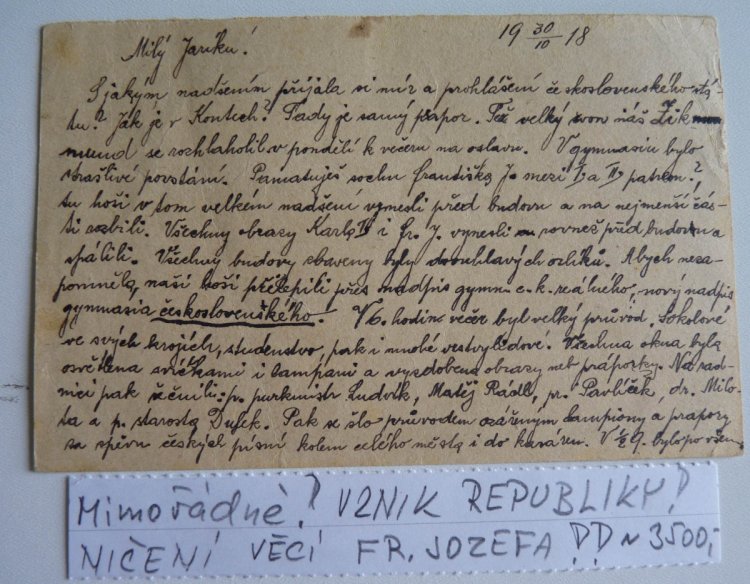 19 30/10 18
Milý Jaríku!
S jakým nadšením přijala si mír a prohlášení československého stá-
tu? Jak je v Kontech? Tady je samý prapor. Též velký zvon náš Zik-
mund se rozhlaholil v pondělí k večeru na oslavu. V gymnasiu bylo
strašlivé povstání. Pamatuješ sochu Františka J. mezi I. a II. patrem?,
tu hoši v tom velkém nadšení vynesli před budovu a na nejmenší čás-
ti rozbili. Všechny obrazy Karla IV i Fr. J. vynesli rovněž před budovu a
spálili. Všechny budovy zbaveny byly dvouhlavých orlíků. Abych neza-
pomněla, naši hoši přelepili přes nadpis gymn. c. k. reálného, "nový nadpis
gymnasia československého! V 6. hodin večer byl velký průvod. Sokolové
ve svých krojích, studenstvo, pak i mnohé Všechna okna byla
osvětlena svíčkami i lampami a vyzdobena obrazy neb práporky. Na rad-
nici pak řečnili: p. purkmistr Ludvík, Matěj Rádl, pr. Pavlíček, dr. Milo-
ta a p. starosta Dušek. Pak se šlo průvodem ozářeným lampiony a prapory
za zpěvu českých písní kolem celého města i do kaváren. V ½ 9. bylo po všem
Mimořádné! VZNIK REPUBLIKY!
NIČENÍ VĚCÍ FR. JOZEFA!! DD ~ 3500,-